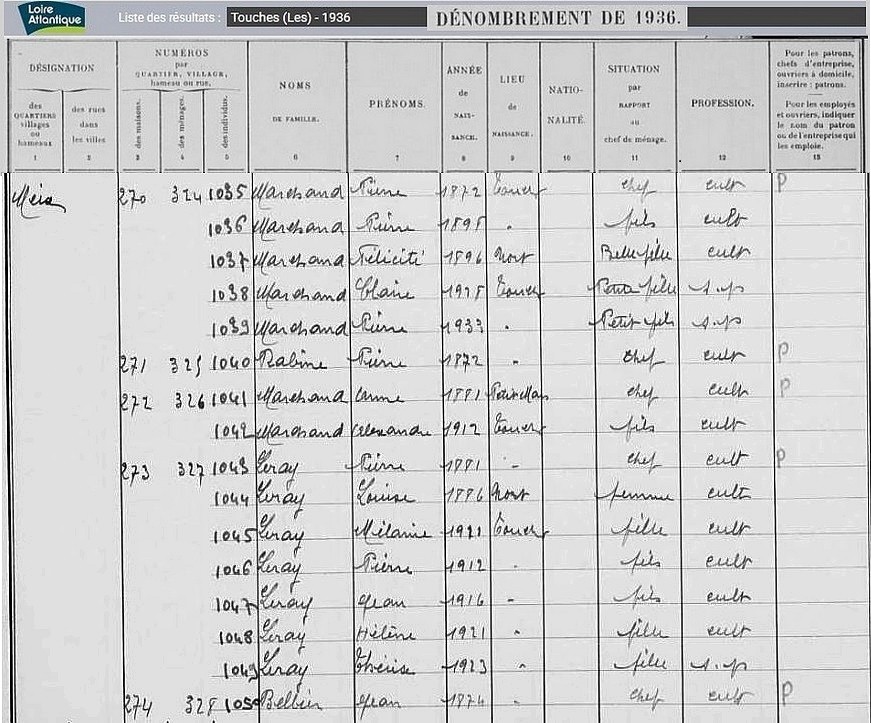 Loire Atlantique
Liste des résultats : Touches (Les) - 1936
DÉNOMBREMENT DE 1936.
DÉSIGNATION
des QUARTIERS villages ou hameaux
1
des rues dans les villes
2
NUMÉROS par QUARTIER, VILLAGE, hameau ou rue.
des maisons.
3
des ménages.
4
des individus.
5
NOMS DE FAMILLE.
6
PRÉNOMS.
7
ANNÉE de NAISSANCE.
8
LIEU de NAISSANCE.
9
NATIO-NALITÉ.
10
SITUATION par RAPPORT au chef de ménage.
11
PROFESSION.
12
Pour les patrons, chefs d'entreprise, ouvriers à domicile, inscrire : patrons.
Pour les employés et ouvriers, indiquer le nom du patron ou de l'entreprise qui les emploie.
13
270 324 1035 Marchand Pierre 1872 chef cult P
1036 Marchand Pierre 1895 " fils cult
1037 Marchand Félicité 1896 Nort Belle fille cult
1038 Marchand Claire 1925 Petite fille s.p
1039 Marchand Pierre 1933 " Petit fils s.p
271 325 1040 Rabine Pierre 1872 " chef cult P
272 326 1041 Marchand Anne 1881 chef cult P
1042 Marchand Alexandre 1912 fils cult
273 327 1043 Leray Pierre 1881 " chef cult P
1044 Leray Louise 1886 Nort femme cult
1045 Leray Mélanie fille cult
1046 Leray Pierre 1912 " fils cult
1047 Leray Jean 1916 " fils cult
1048 Leray Hélène 1921 " fille cult
1049 Leray Thérèse 1923 " fille s.p
274 328 1050 Jean 1874 " chef cult P